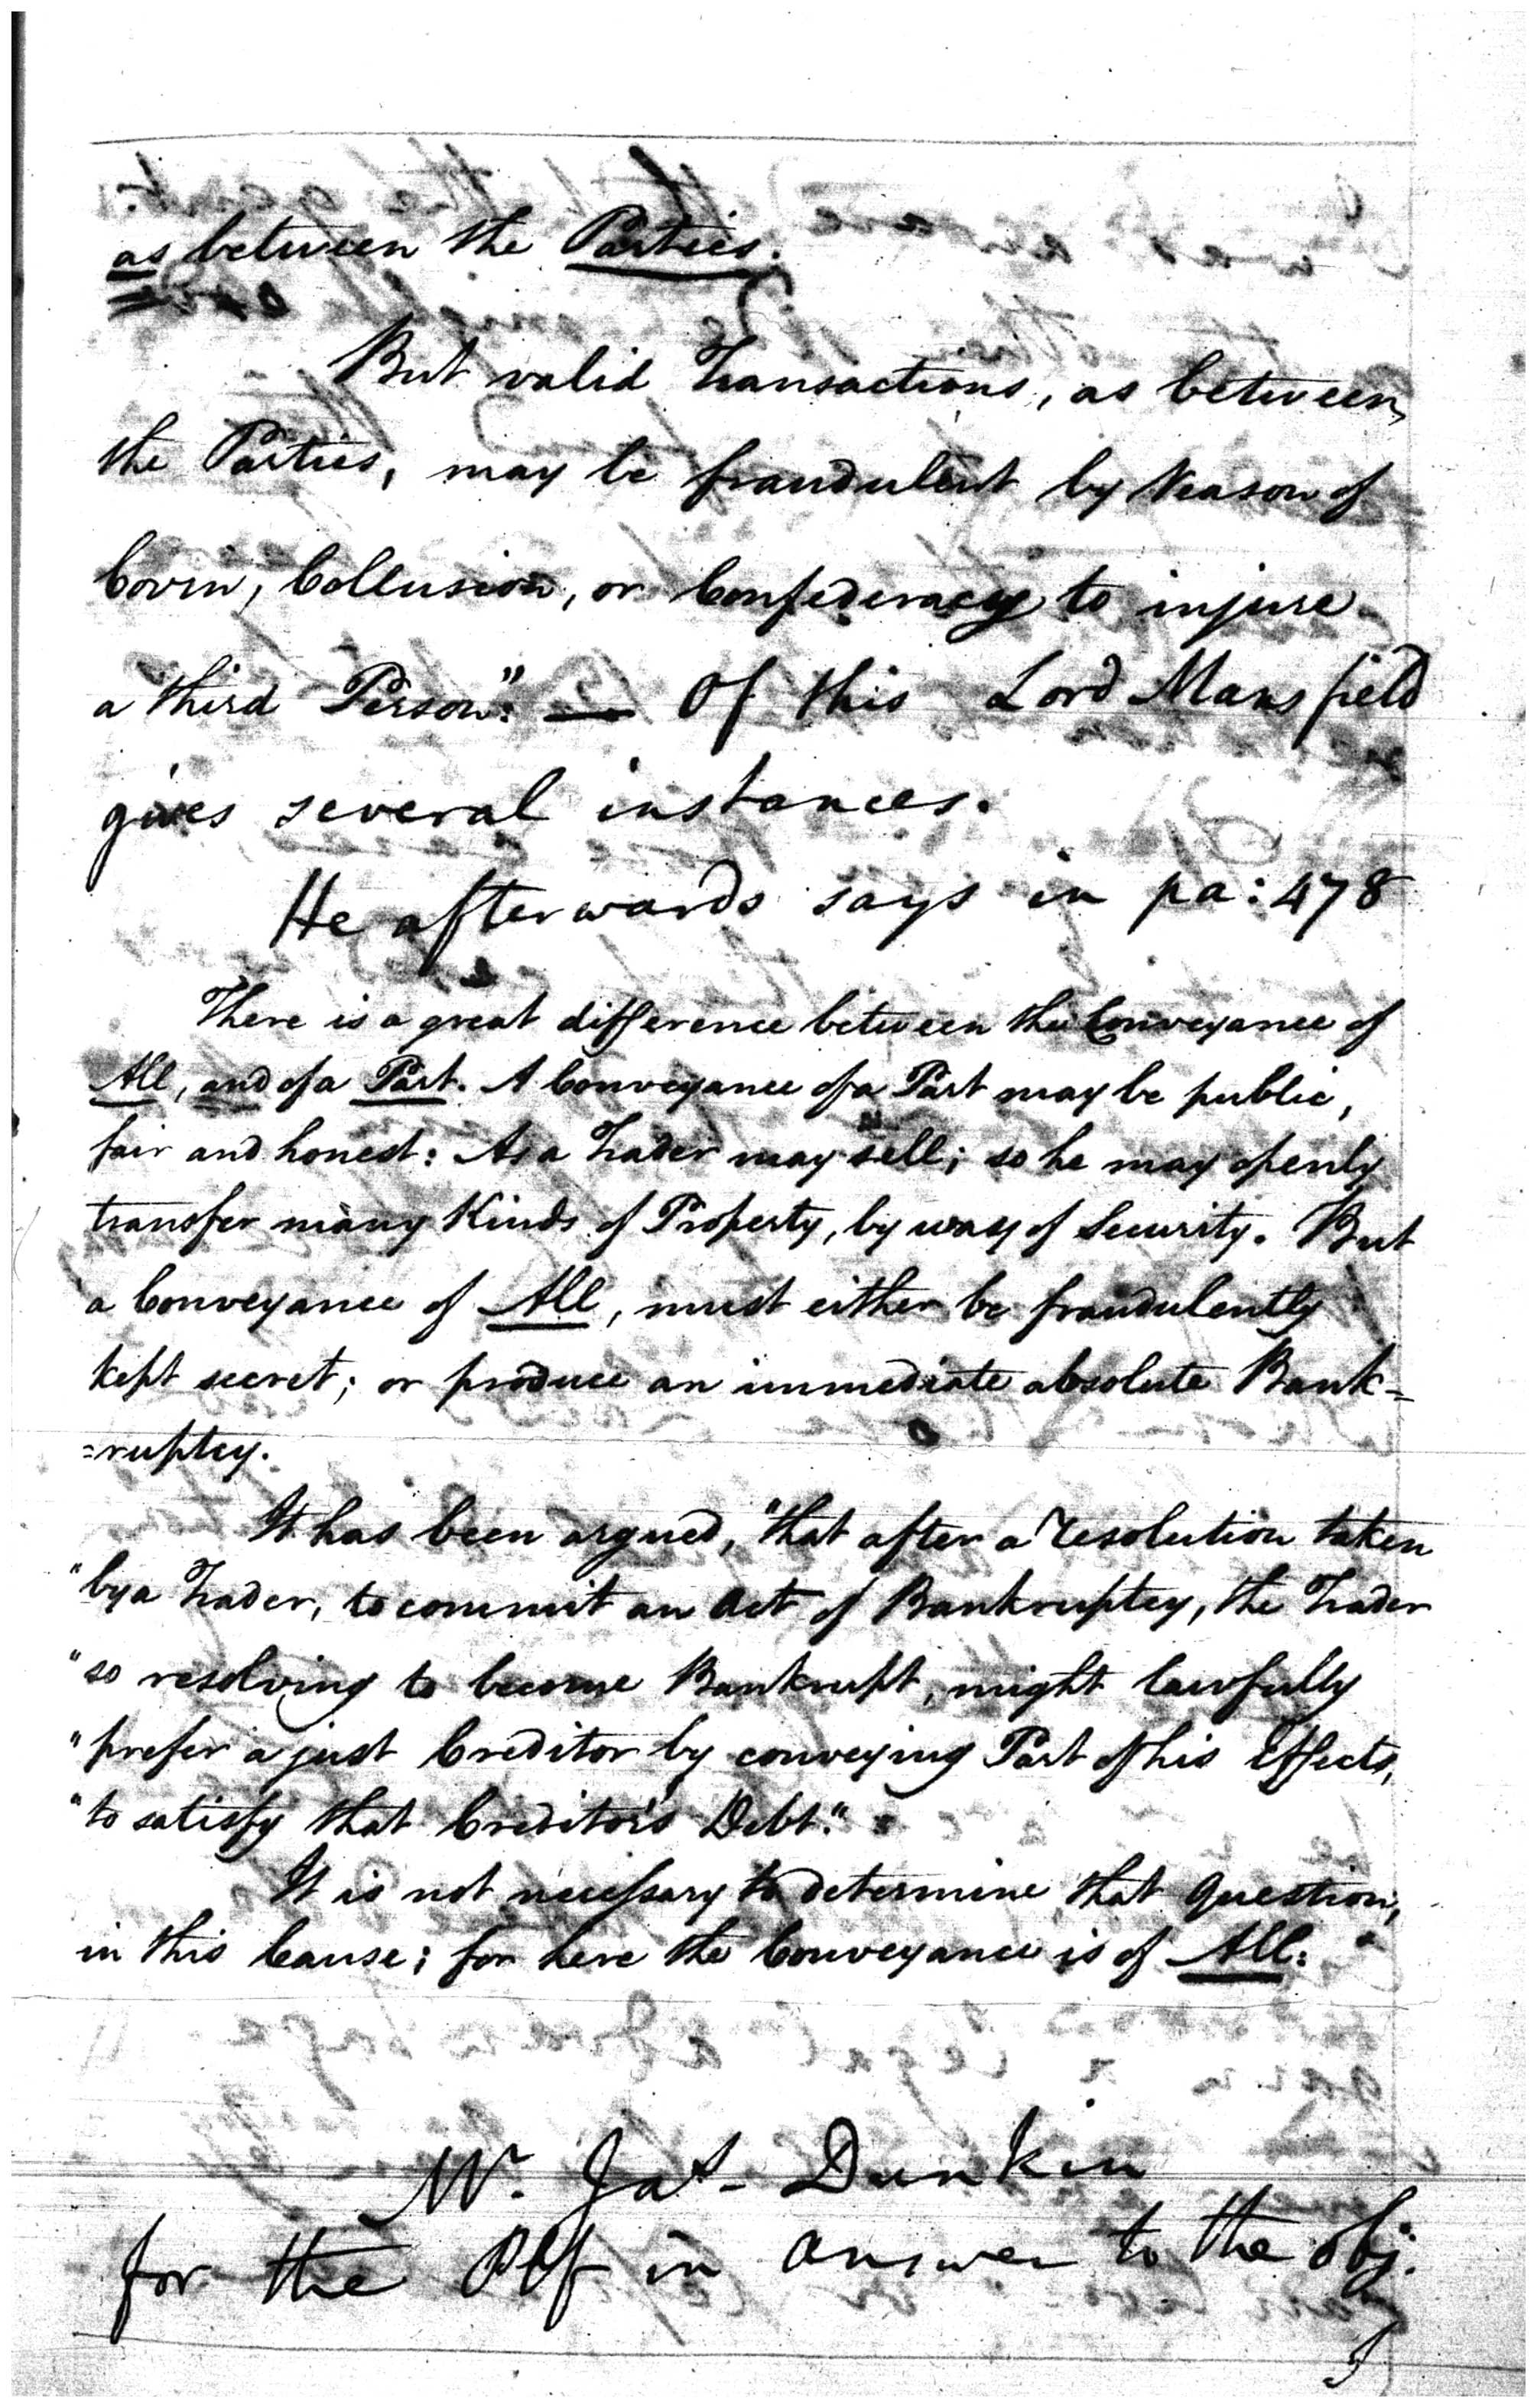 as between the Parties.
But valid Transactions, as between
the Parties, may be fraudulent by Reason of
Covin, Collusion, or Confederacy to injure
a third Person." — Of this Lord Mansfield
gives several instances.
He afterwards says in pa: 478
There is a great difference between the Conveyance of
All, and of a Part. A Conveyance of a Part may be public,
fair and honest: As a Trader may sell; so he may openly
transfer many Kinds of Property, by way of Security. But
a Conveyance of All, must either be fraudulently
kept secret; or produce an immediate absolute Bank=
=ruptcy.
It has been argued, "that after a resolution taken
"by a Trader, to commit an Act of Bankruptcy, the Trader
"so resolving to become Bankrupt, might lawfully
"prefer a just Creditor by conveying Part of his Effects,
"to satisfy that Creditor's Debt."
It is not necessary to determine that Question,
in this Cause; for here the Conveyance is of All:
Mr. Jas. Dunkin
for the Plf in answer to the obj.